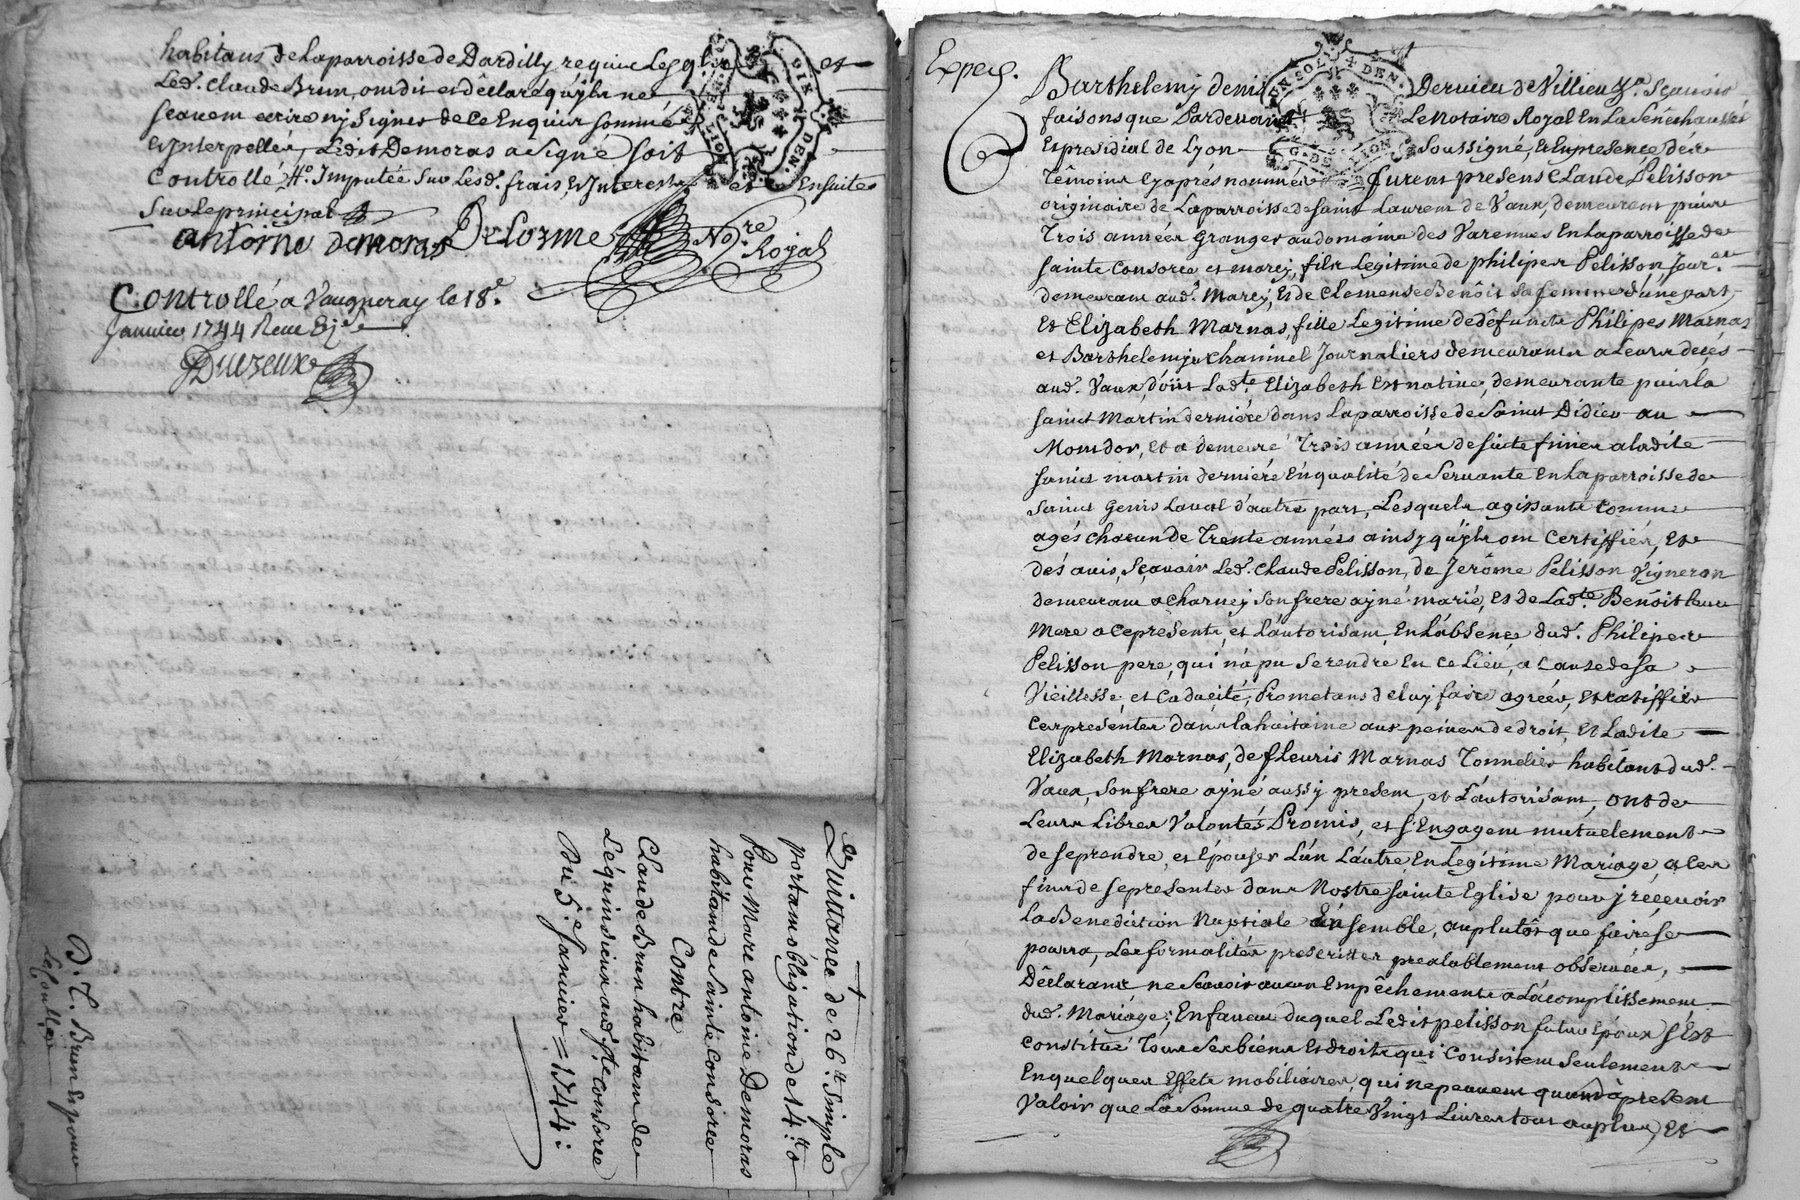 habitans de Laparroisse de Dardilly requis Lesq et
Led. Claude Brun, ont dit et déclaré quÿls ne
scavent ecrire ny signer de ce Enquis sommé
Et ynterpellés, Ledit Demoras a signé soit
Controllé, Imputée sur Lesd. frais, Et Interests et Ensuite
Sur le principal
antoine demoras Delorme No.re Royal
Controllé a Vaugneray le 18.e
Janvier 1744 Reçu
Duvzeux
Quittance de 26 simple
portant obligation de 14
Pour Mare antoine Demoras
habitant de Sainte Consorce
Contre
Claude Brun habitant de
Léquindieu aud. Ste consorce
Du 5.e Janvier = 1744:
B. T. Brun
Exped.
Barthelemy deni Dervieu de Villieu Sçavoir
faisons que Pardevant Le Notaire Royal En La Sénéchaussée
Et presidial de Lyon Soussigné, Et En presence des
Témoins Cyaprés nommés furent presens Claude Pelisson
originaire de Laparroisse de saint Laurent de Vaux, demeurant puis
Trois années Granger au domaine des Varennes En Laparroisse de
sainte Consorce et marcy, fils Legitime de philipes Pelisson, Jour.er
demeurant aud. Marcy, Et de Clemense Benôit sa femme d'une part,
Et Elizabeth Marnas, fille Legitime de défunts Philipes Marnas
et Barthelemye Chaninel Journaliers demeurants a Leurs décés
aud. Vaux, d'où Lad.te Elizabeth Est native, demeurante puis la
saint Martin derniére dans Laparroisse de saint Didier au
Montdor, Et a demeuré Trois années de suite finies a ladite
saint martin derniére En qualité de Servante En Laparroisse de
saint Genis Laval d'autre part, Lesquels agissants comme
agés chacun de Trente années ainsy quÿls ont Certiffiés, Et
dés avis, sçavoir Led. Claude Pelisson, de Jerôme Pelisson Vigneron
demeurant a Charney son frere ayné marié, Et de Lad.te Benôit leur
Mere a ce presents, et L'autorisant, En L'absence dud. Philipes
Pelisson pere, qui n'a pu se rendre En ce Lieu, a cause de sa
Vieillesse, et Caducité, Prometans de luy faire agréer, Et ratiffier
Ces presentes dans la huitaine aux peines de droit, Et Ladite
Elizabeth Marnas, de fleuris Marnas Tonnelier habitant dud.
Vaux, son frere ayné aussy present, et L'autorisant, ont de
Leurs Libres Volontés Promis, et s'Engagent mutuelement
de se prendre, et Epouser L'un L'autre En Legitime Mariage, a ces
fins de se presenter dans Nostre sainte Eglise pour y recevoir
La Benediction Nuptiale Ensemble, au plutôt que faire se
pourra, Les formalités prescrittes prealablement observées,
Déclarant ne scavoir aucun Empêchement a L'acomplissement
dud. Mariage; En faveur duquel Ledit pelisson futur Epoux s'Est
constitué Tous ses biens Et droits qui Consistent seulement
En quelques Effets mobiliaires, qui ne peuvent quand à present
Valoir que La Somme de quatre Vingt Livres tout au plus, Et